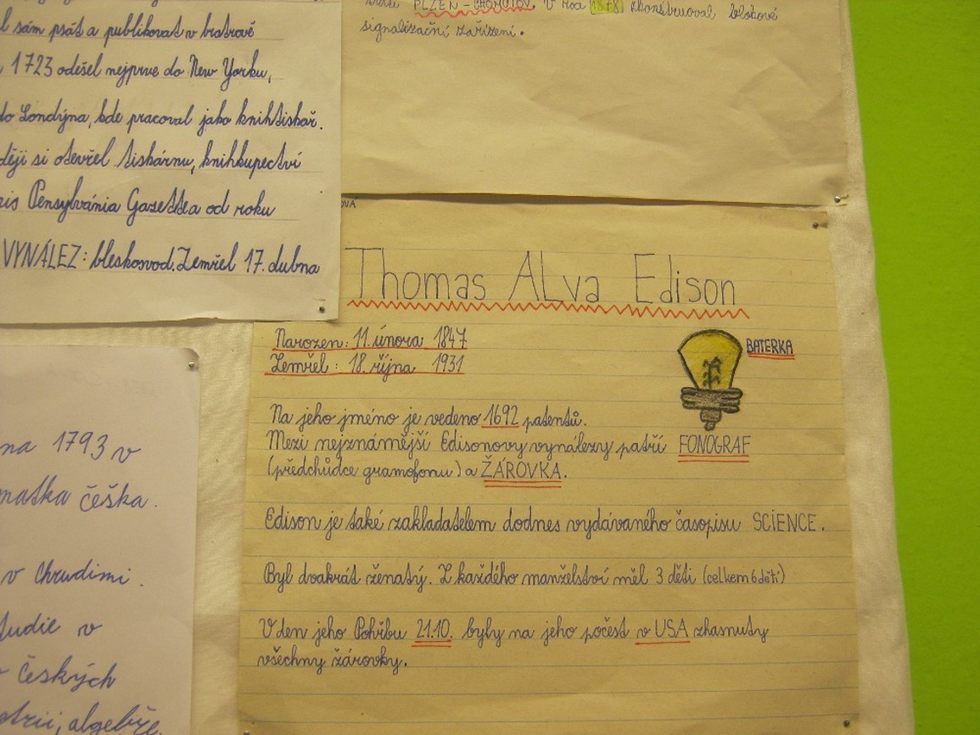 l sám psát a publikovat v bratrově
1723 odešel nejprve do New Yorku,
do Londýna, kde pracoval jako knihtiskař.
ději si otevřel tiskárnu, knihkupectví
pis Pensylvánia Gazettea od roku
VYNÁLEZ: bleskosvod. Zemřel 17. dubna
PLZEŇ - CHOMUTOV. V roce 1878 zkonstruoval blokové
signalizační zařízení.
OVÁ
Thomas ALva Edison
Narozen: 11. února 1847
Zemřel: 18. října 1931
BATERKA
Na jeho jméno je vedeno 1692 patentů.
Mezi nejznámější Edisonovy vynálezy patří FONOGRAF
(předchůdce gramofonu) a ŽÁROVKA.
Edison je také zakladatelem dodnes vydávaného časopisu SCIENCE.
Byl dvakrát ženatý. Z každého manželství měl 3 děti (celkem 6 dětí)
V den jeho Pohřbu 21.10. byly na jeho počest v USA zhasnuty
všechny žárovky.
na 1793 v
matka češka.
v Chrudimi.
tudie v
českých
etrii, algebře.